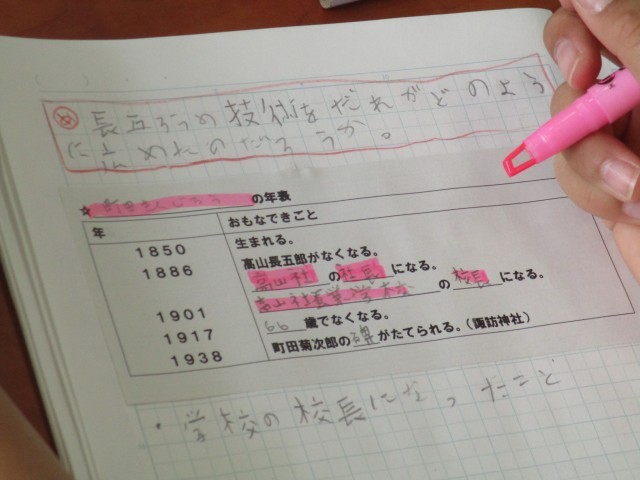 長五ろうの技術をだれがどのよう
に広めたのだろうか。
☆町田きくじろうの年表
年 おもなできごと
1850 生まれる。
1886 高山長五郎がなくなる。
高山社の社長になる。
1901 高山社蚕業学校の校長になる。
1917 66歳でなくなる。
1938 町田菊次郎の碑がたてられる。(諏訪神社)
・学校の校長になったこと